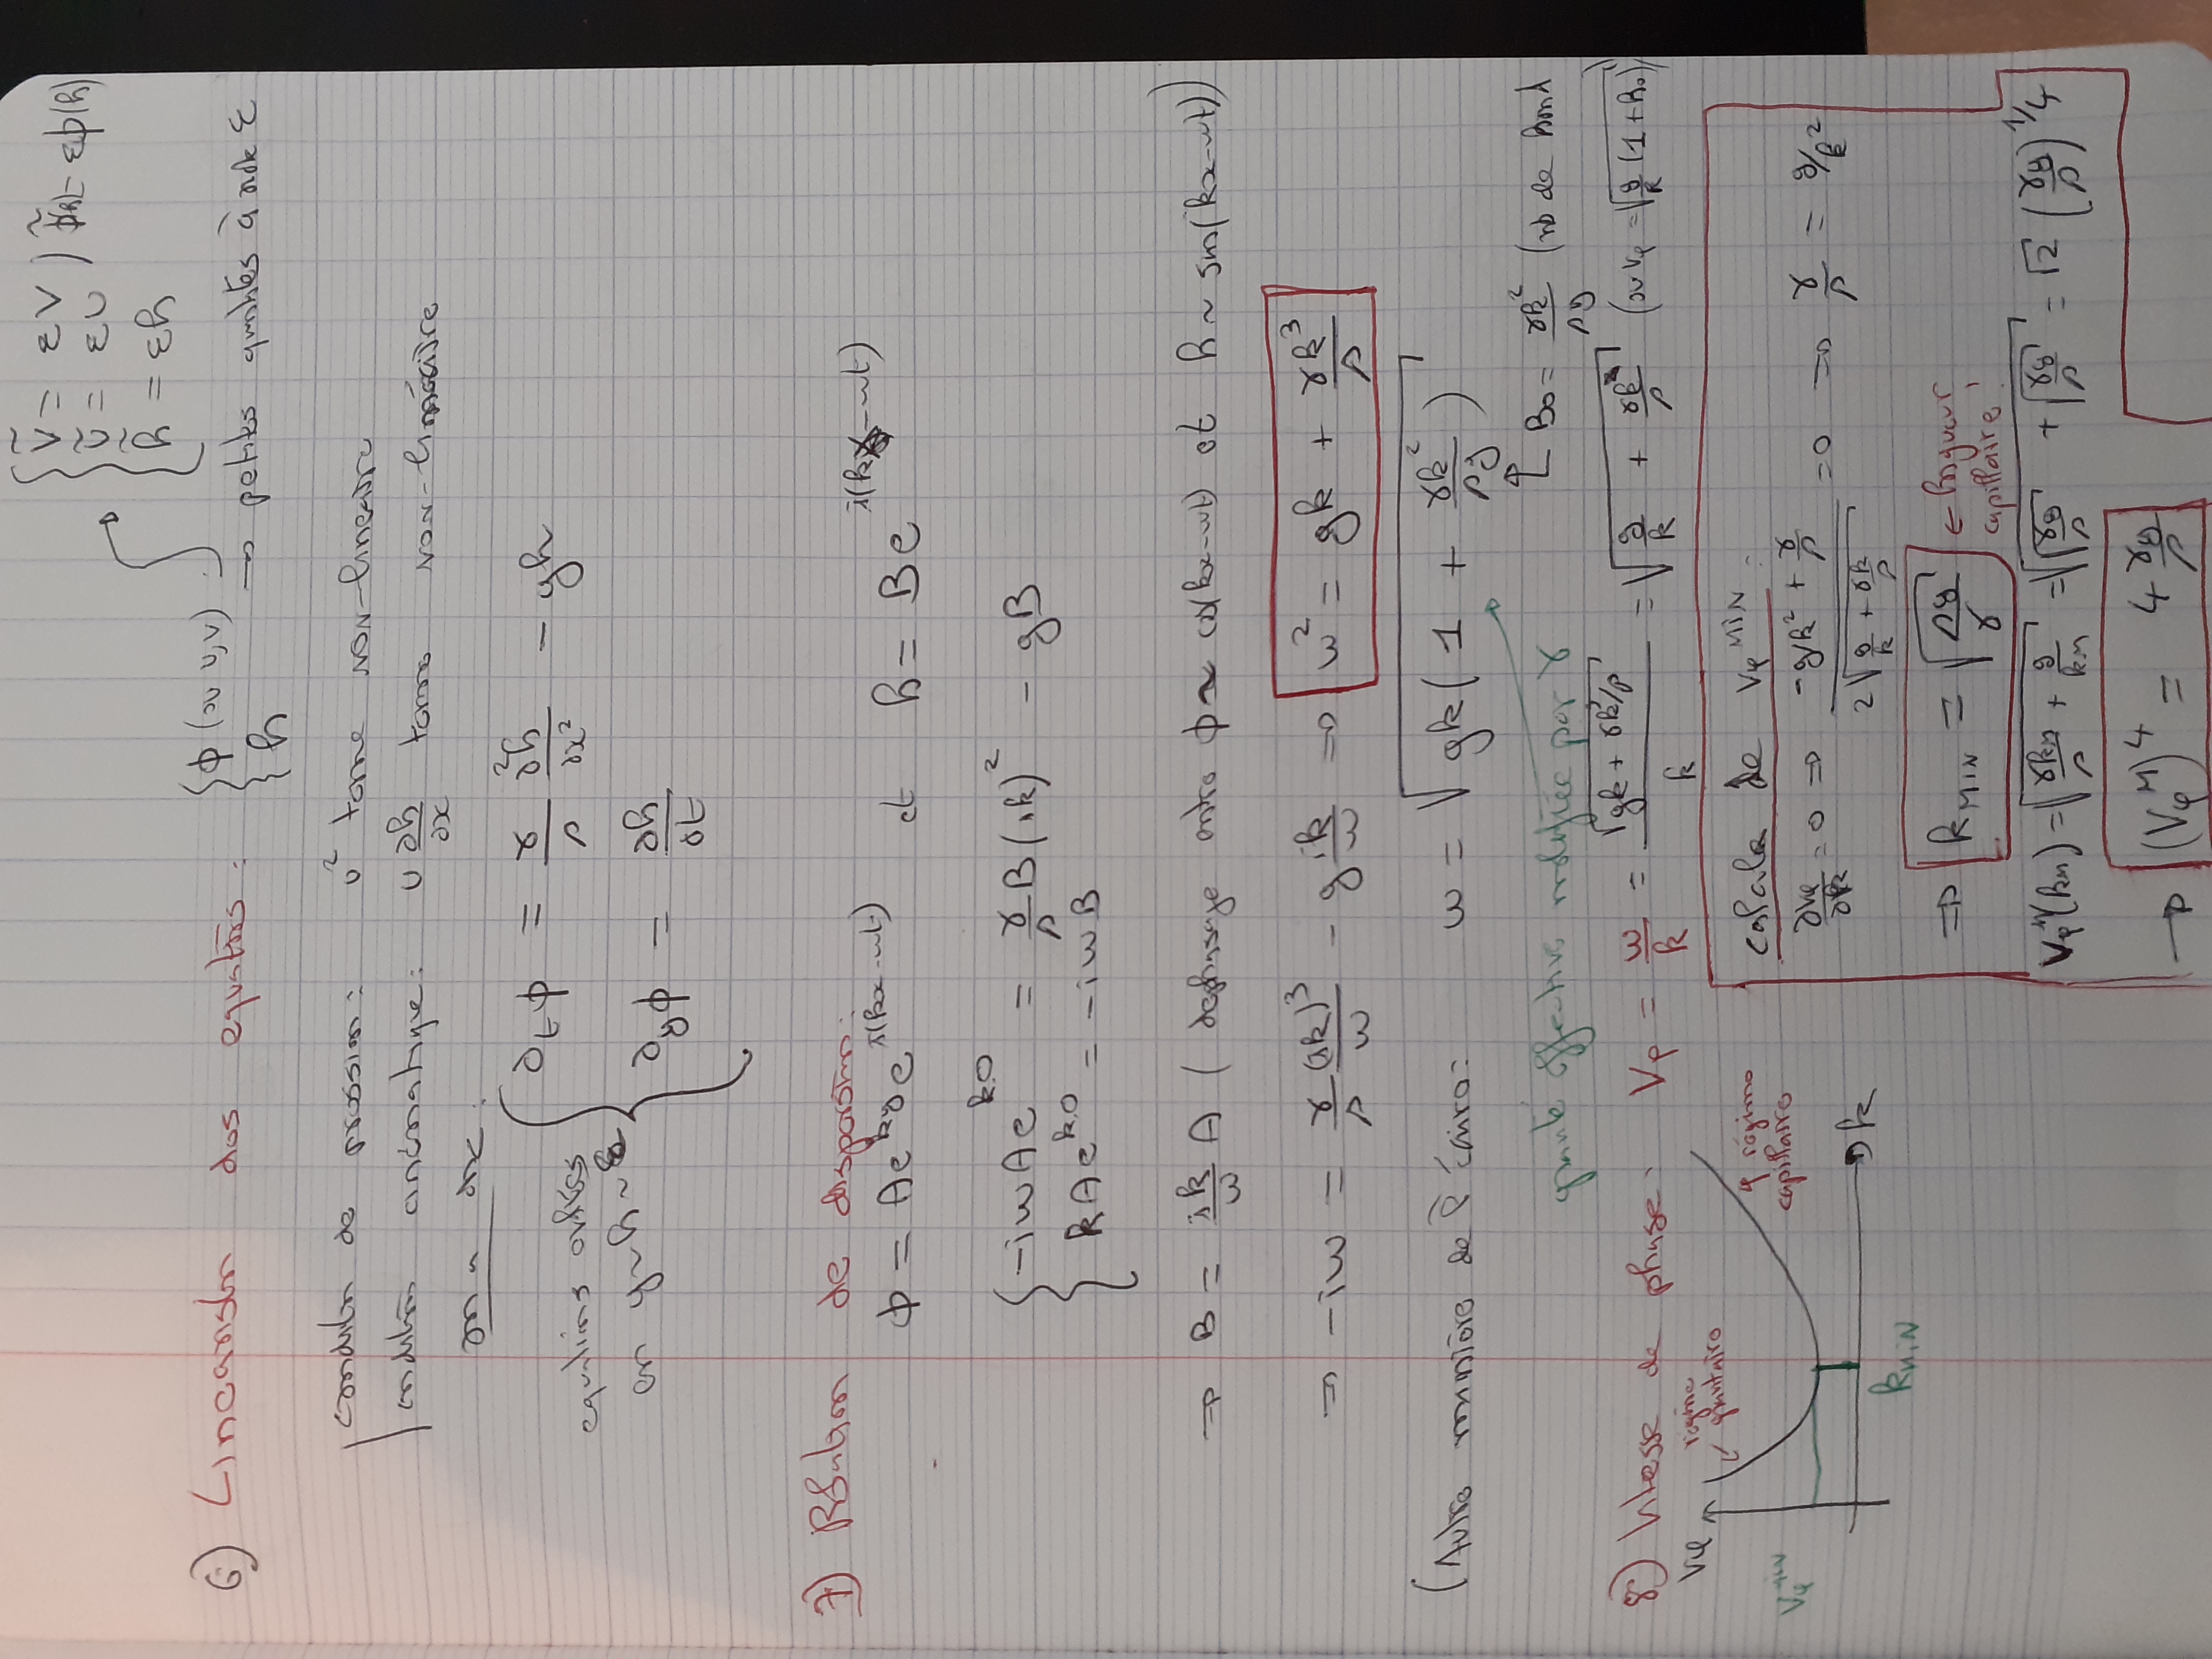 { Ṽ = εV ) φ̃(h) = εφ(h)
Ũ = εU
h̃ = εh
6) Linearisation des equations : { φ (ou u,v)
{ h → petites quantités à ordre ε
condition de pression : u² terme non-lineaire
condition cinématique : u ∂h/∂x terme non-linéaire
on a donc :
∂_t φ = γ/ρ ∂²h/∂x² - gh
equations
en y~h~ε
∂_y φ = ∂h/∂t
7) Relation de dispersion :
φ = A e^{ky} e^{i(kx-ωt)} et h = B e^{i(kx-ωt)}
{ -iωAe^{k.0} = γ/ρ B(ik)² - gB
kAe^{k.0} = -iωB
⇒ B = ik/ω A ( dephasage entre φ ~ cos(kx-ωt) et h ~ sin(kx-ωt))
⇒ -iω = γ/ρ (ik)³/ω - g ik/ω ⇒ ω² = gk + γk³/ρ
(Autre manière de l'écrire : ω = √(gk(1 + γk²/ρg))
↑ Bo = γk²/ρg (nb de Bond
gravité effective modifiée par γ
8) Vitesse de phase : Vφ = ω/k = √(gk + γk³/ρ)/k = √(g/k + γk/ρ) (ou Vφ = √(g/k (1 + Bo))
Vφ
régime
gravitaire
↑ régime
capillaire
Vφ^min
→ k
k_MIN
calcul de Vφ^MIN :
∂Vφ/∂k = 0 ⇒ (-g/k² + γ/ρ)/(2√(g/k + γk/ρ)) = 0 ⇒ γ/ρ = g/k²
⇒ k_MIN = √(ρg/γ) ← longueur
capillaire !
Vφ^M(k_M) = √(γk_M/ρ + g/k_M) = √(√(γg/ρ) + √(γg/ρ)) = √2 (γg/ρ)^{1/4}
→ (Vφ^M)^4 = 4 γg/ρ